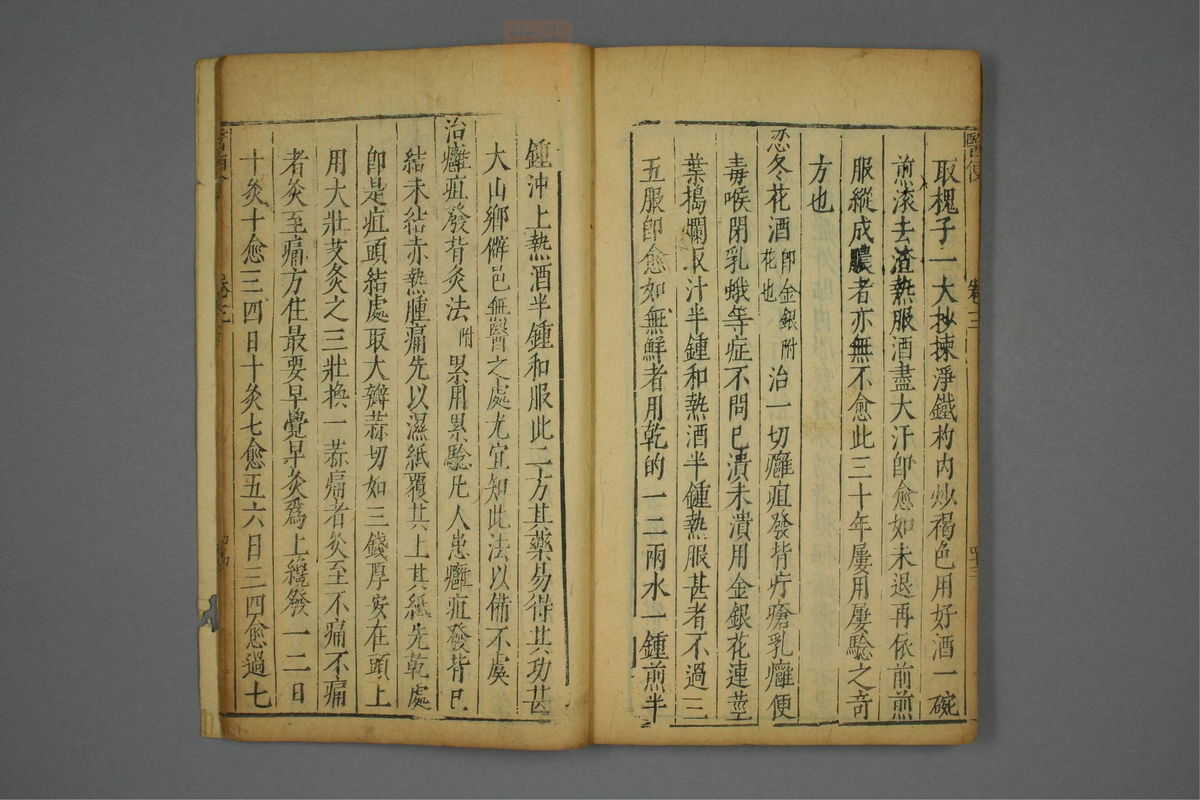 醫便
卷三
四三
取槐子一大抄揀淨鐵杓內炒褐色用好酒一碗
煎滾去渣熱服酒盡大汗即愈如未退再依前煎
服縱成膿者亦無不愈此三十年屢用屢驗之奇
方也
忍冬花酒 即金銀花也 附 治一切癰疽發背疔瘡乳癰便
毒喉閉乳蛾等症不問已潰未潰用金銀花連莖
葉搗爛取汁半鍾和熱酒半鍾熱服甚者不過三
五服即愈如無鮮者用乾的一二兩水一鍾煎半
鍾沖上熱酒半鍾和服此二方其藥易得其功甚
大山鄉僻邑無醫之處尤宜知此法以備不虞
治癰疽發背灸法 附 累用累驗凡人患癰疽發背已
結未結赤熱腫痛先以濕紙覆其上其紙先乾處
即是疽頭結處取大瓣蒜切如三錢厚安在頭上
用大壯艾灸之三壯換一蒜痛者灸至不痛不痛
者灸至痛方住最要早覺早灸爲上纔發一二日
十灸十愈三四日十灸七愈五六日三四愈過七
卷三